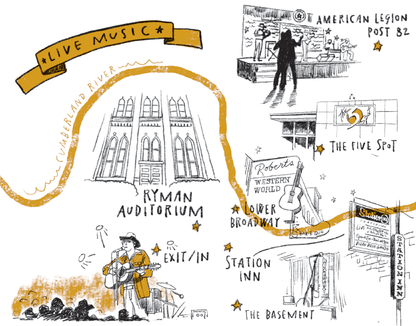 ★LIVE MUSIC★
AMERICAN LEGION
POST 82
CUMBERLAND RIVER
THE FIVE SPOT
Robert's
WESTERN
WORLD
RYMAN
AUDITORIUM
LOWER
BROADWAY
EXIT/IN
STATION
INN
Station
STATION INN
THE BASEMENT